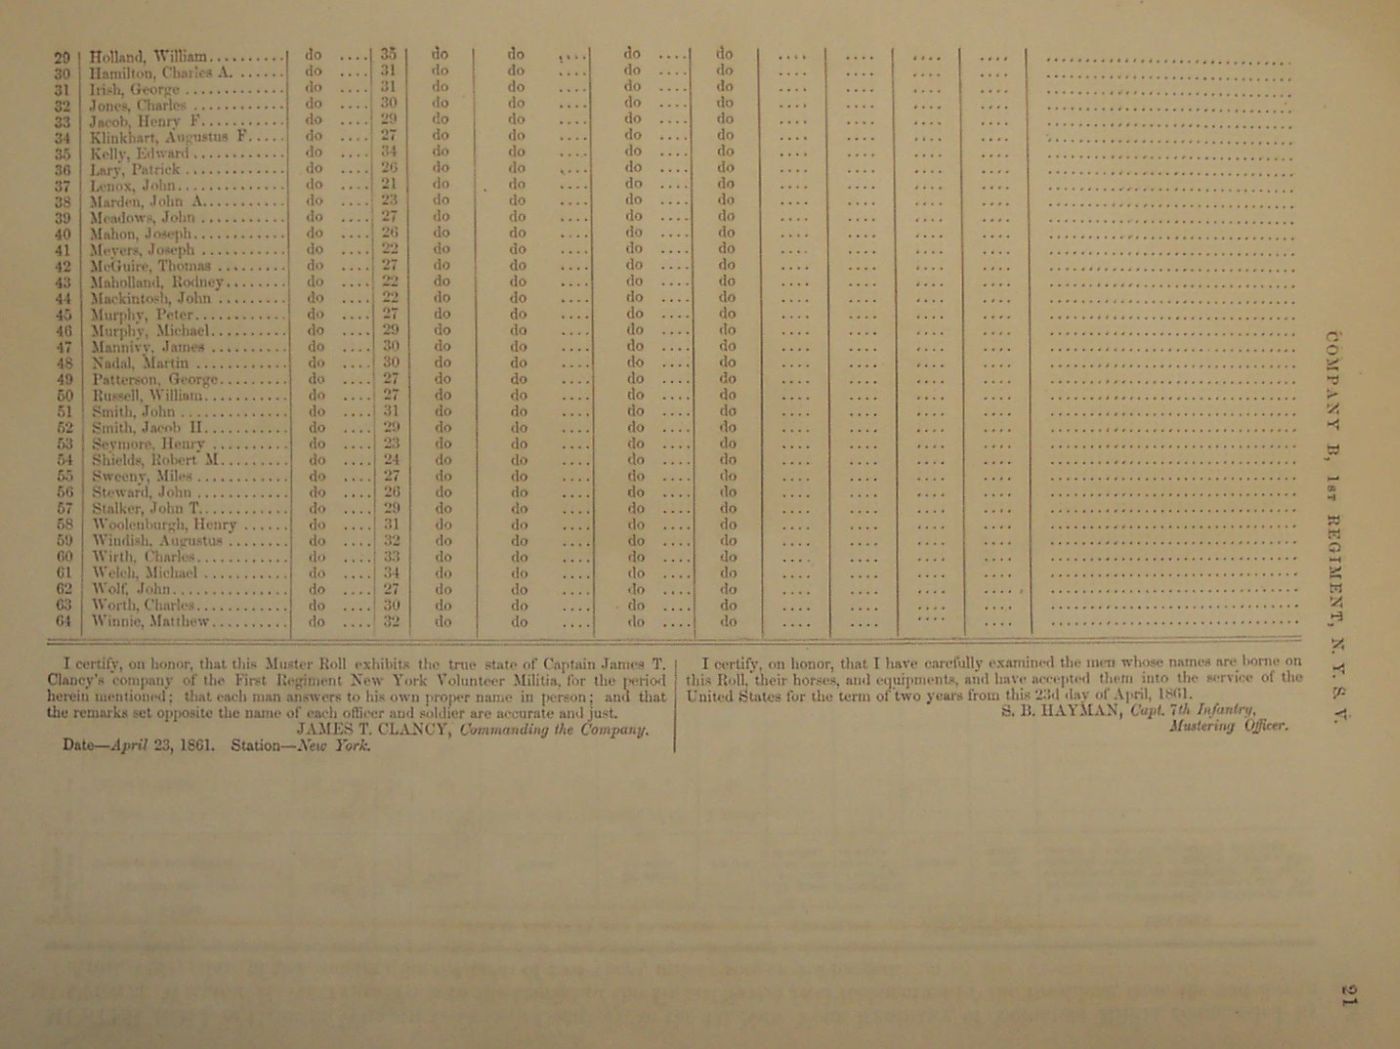 29 Holland, William.......... do .... 35 do do .... do .... do .... .... .... ....
30 Hamilton, Charles A. ...... do .... 31 do do .... do .... do .... .... .... ....
31 Irish, George ............. do .... 31 do do .... do .... do .... .... .... ....
32 Jones, Charles ............ do .... 30 do do .... do .... do .... .... .... ....
33 Jacob, Henry F............ do .... 29 do do .... do .... do .... .... .... ....
34 Klinkhart, Augustus F..... do .... 27 do do .... do .... do .... .... .... ....
35 Kelly, Edward ............ do .... 34 do do .... do .... do .... .... .... ....
36 Lary, Patrick ............. do .... 26 do do .... do .... do .... .... .... ....
37 Lenox, John.............. do .... 21 do do .... do .... do .... .... .... ....
38 Marden, John A........... do .... 23 do do .... do .... do .... .... .... ....
39 Meadows, John ........... do .... 27 do do .... do .... do .... .... .... ....
40 Mahon, Joseph............ do .... 26 do do .... do .... do .... .... .... ....
41 Meyers, Joseph ........... do .... 22 do do .... do .... do .... .... .... ....
42 McGuire, Thomas ......... do .... 27 do do .... do .... do .... .... .... ....
43 Maholland, Rodney........ do .... 22 do do .... do .... do .... .... .... ....
44 Mackintosh, John ......... do .... 22 do do .... do .... do .... .... .... ....
45 Murphy, Peter............ do .... 27 do do .... do .... do .... .... .... ....
46 Murphy, Michael.......... do .... 29 do do .... do .... do .... .... .... ....
47 Mannivy, James .......... do .... 30 do do .... do .... do .... .... .... ....
48 Nadal, Martin ............ do .... 30 do do .... do .... do .... .... .... ....
49 Patterson, George......... do .... 27 do do .... do .... do .... .... .... ....
50 Russell, William........... do .... 27 do do .... do .... do .... .... .... ....
51 Smith, John .............. do .... 31 do do .... do .... do .... .... .... ....
52 Smith, Jacob H........... do .... 29 do do .... do .... do .... .... .... ....
53 Seymore, Henry .......... do .... 23 do do .... do .... do .... .... .... ....
54 Shields, Robert M......... do .... 24 do do .... do .... do .... .... .... ....
55 Sweeny, Miles............ do .... 27 do do .... do .... do .... .... .... ....
56 Steward, John ............ do .... 26 do do .... do .... do .... .... .... ....
57 Stalker, John T........... do .... 29 do do .... do .... do .... .... .... ....
58 Woolenburgh, Henry ...... do .... 31 do do .... do .... do .... .... .... ....
59 Windish, Augustus ........ do .... 32 do do .... do .... do .... .... .... ....
60 Wirth, Charles............ do .... 33 do do .... do .... do .... .... .... ....
61 Welch, Michael ........... do .... 34 do do .... do .... do .... .... .... ....
62 Wolf, John............... do .... 27 do do .... do .... do .... .... .... ....
63 Worth, Charles........... do .... 30 do do .... do .... do .... .... .... ....
64 Winnie, Matthew.......... do .... 32 do do .... do .... do .... .... .... ....
I certify, on honor, that this Muster Roll exhibits the true state of Captain James T.
Clancy's company of the First Regiment New York Volunteer Militia, for the period
herein mentioned; that each man answers to his own proper name in person; and that
the remarks set opposite the name of each officer and soldier are accurate and just.
JAMES T. CLANCY, Commanding the Company.
Date—April 23, 1861. Station—New York.
I certify, on honor, that I have carefully examined the men whose names are borne on
this Roll, their horses, and equipments, and have accepted them into the service of the
United States for the term of two years from this 23d day of April, 1861.
S. B. HAYMAN, Capt. 7th Infantry,
Mustering Officer.
COMPANY B, 1ST REGIMENT, N. Y. S. V.
21